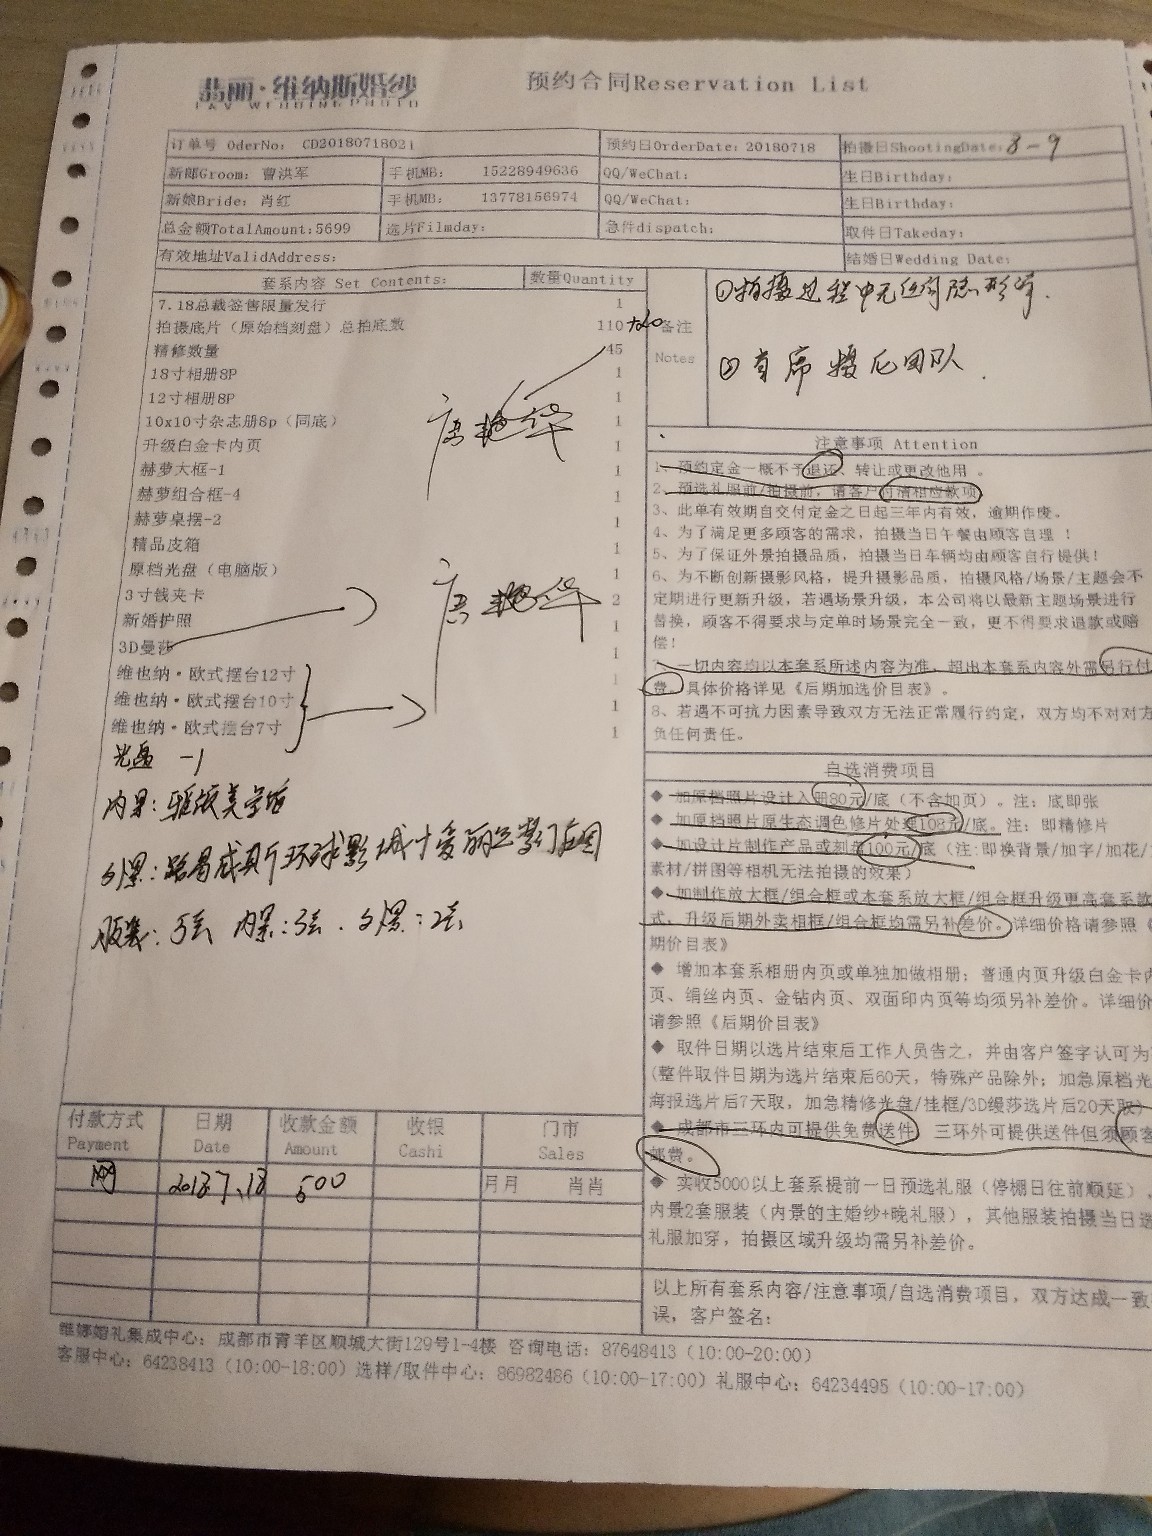 翡丽·维纳斯婚纱
预约合同Reservation List
订单号 OderNo: CD20180718021
预约日OrderDate: 20180718
拍摄日ShootingDate: 8-9
新郎Groom: 曹洪军 手机MB: 15228949636 QQ/WeChat: 生日Birthday:
新娘Bride: 肖红 手机MB: 13778156974 QQ/WeChat: 生日Birthday:
总金额TotalAmount:5699 选片Filmday: 急件dispatch: 取件日Takeday:
有效地址ValidAddress: 结婚日Wedding Date:
套系内容 Set Contents: 数量Quantity
7.18总裁签售限量发行 1
拍摄底片（原始档刻盘）总拍底数 110
精修数量 45
18寸相册8P 1
12寸相册8P 1
10x10寸杂志册8p（同底） 1
升级白金卡内页 1
赫萝大框-1 1
赫萝组合框-4 1
赫萝桌摆-2 1
精品皮箱 1
原档光盘（电脑版） 1
3寸钱夹卡 2
新婚护照 1
3D曼莎 1
维也纳·欧式摆台12寸 1
维也纳·欧式摆台10寸 1
维也纳·欧式摆台7寸 1
唐艳华
唐艳华
光盘 -1
内景:
外景:
服装: 5套 内景:3套. 外景: 2套
备注
Notes
①拍摄过程中无任何隐形消.
②首席摄影团队.
注意事项 Attention
1、预约定金一概不予退还、转让或更改他用 。
2、预选礼服前/拍摄前，请客户付清相应款项
3、此单有效期自交付定金之日起三年内有效，逾期作废。
4、为了满足更多顾客的需求，拍摄当日午餐由顾客自理 ！
5、为了保证外景拍摄品质，拍摄当日车辆均由顾客自行提供！
6、为不断创新摄影风格，提升摄影品质，拍摄风格/场景/主题会不
定期进行更新升级，若遇场景升级，本公司将以最新主题场景进行
替换，顾客不得要求与定单时场景完全一致，更不得要求退款或赔
偿！
7、一切内容均以本套系所述内容为准，超出本套系内容外需另行付
费。具体价格详见《后期加选价目表》。
8、若遇不可抗力因素导致双方无法正常履行约定，双方均不对对方
负任何责任。
自选消费项目
◆ 加原档照片设计入册80元/底（不含加页）。注: 底即张
◆ 加原档照片原生态调色修片处理108元/底。注: 即精修片
◆ 加设计片制作产品或刻盘100元/底（注:即换背景/加字/加花/
素材/拼图等相机无法拍摄的效果）
◆ 加制作放大框/组合框或本套系放大框/组合框升级更高套系款
式，升级后期外卖相框/组合框均需另补差价。详细价格请参照《
期价目表》
◆ 增加本套系相册内页或单独加做相册; 普通内页升级白金卡内
页、绢丝内页、金钻内页、双面印内页等均须另补差价。详细价
请参照《后期价目表》
◆ 取件日期以选片结束后工作人员告之，并由客户签字认可为
(整件取件日期为选片结束后60天，特殊产品除外; 加急原档光
海报选片后7天取，加急精修光盘/挂框/3D缦莎选片后20天取)
◆ 成都市三环内可提供免费送件，三环外可提供送件但须顾客
邮费。
◆ 实收5000以上套系提前一日预选礼服（停棚日往前顺延），
内景2套服装（内景的主婚纱+晚礼服），其他服装拍摄当日选
礼服加穿，拍摄区域升级均需另补差价。
以上所有套系内容/注意事项/自选消费项目，双方达成一致
误，客户签名:
付款方式 日期 收款金额 收银 门市
Payment Date Amount Cashi Sales
网 2018.7.18 500 月月 肖肖
维婷婚礼集成中心: 成都市青羊区顺城大街129号1-4楼 咨询电话: 87648413（10:00-20:00）
客服中心: 64238413（10:00-18:00）选样/取件中心: 86982486（10:00-17:00）礼服中心: 64234495（10:00-17:00）